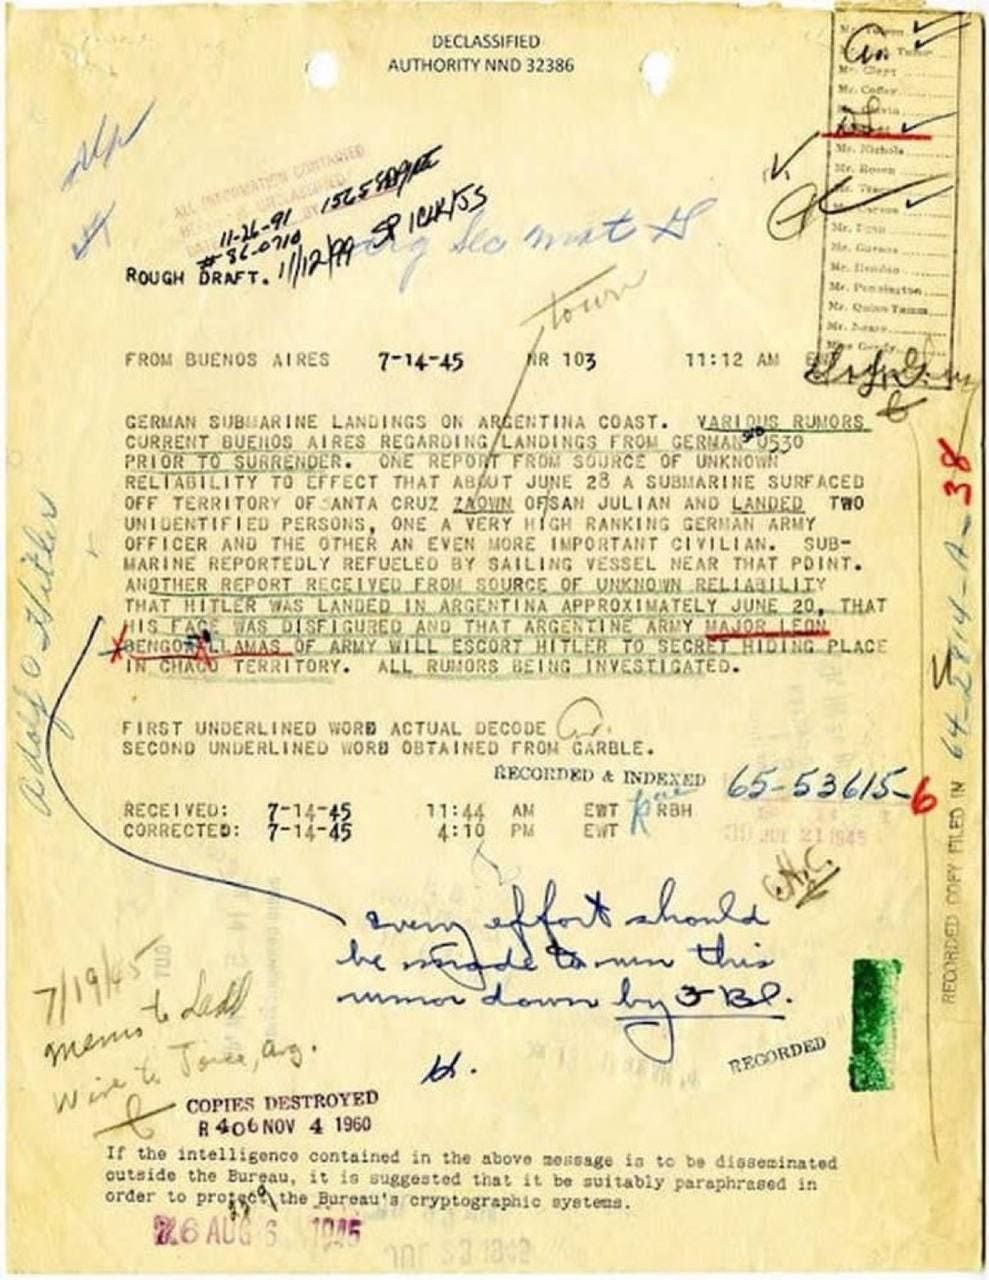 DECLASSIFIED
AUTHORITY NND 32386
Mr. Clegg
Mr. Coffey
Mr. Nichols
Mr. Rosen
Mr. Carson
Mr. Egan
Mr. Hendon
Mr. Pennington
Mr. Quinn Tamm
Mr. Nease
Miss Gandy
ALL INFORMATION CONTAINED
11-26-91
#86-0710
11/12/99
ROUGH DRAFT.
town
FROM BUENOS AIRES 7-14-45 NR 103 11:12 AM
GERMAN SUBMARINE LANDINGS ON ARGENTINA COAST. VARIOUS RUMORS
CURRENT BUENOS AIRES REGARDING LANDINGS FROM GERMAN U530
PRIOR TO SURRENDER. ONE REPORT FROM SOURCE OF UNKNOWN
RELIABILITY TO EFFECT THAT ABOUT JUNE 28 A SUBMARINE SURFACED
OFF TERRITORY OF SANTA CRUZ ZAOWN OF SAN JULIAN AND LANDED TWO
UNIDENTIFIED PERSONS, ONE A VERY HIGH RANKING GERMAN ARMY
OFFICER AND THE OTHER AN EVEN MORE IMPORTANT CIVILIAN. SUB-
MARINE REPORTEDLY REFUELED BY SAILING VESSEL NEAR THAT POINT.
ANOTHER REPORT RECEIVED FROM SOURCE OF UNKNOWN RELIABILITY
THAT HITLER WAS LANDED IN ARGENTINA APPROXIMATELY JUNE 20, THAT
HIS FACE WAS DISFIGURED AND THAT ARGENTINE ARMY MAJOR LEON
BENGOA LLAMAS OF ARMY WILL ESCORT HITLER TO SECRET HIDING PLACE
IN CHACO TERRITORY. ALL RUMORS BEING INVESTIGATED.
Adolf Hitler
FIRST UNDERLINED WORD ACTUAL DECODE
SECOND UNDERLINED WORD OBTAINED FROM GARBLE.
RECORDED & INDEXED
65-53615-6
RECEIVED: 7-14-45 11:44 AM EWT RBH
CORRECTED: 7-14-45 4:10 PM EWT
JUL 21 1945
RECORDED COPY FILED IN 64-2814-A-38
every effort should
be made to run this
rumor down by FBI.
H.
7/19/45
memo to Ladd
Wire to Joice, Arg.
RECORDED
COPIES DESTROYED
R 406 NOV 4 1960
If the intelligence contained in the above message is to be disseminated
outside the Bureau, it is suggested that it be suitably paraphrased in
order to protect the Bureau's cryptographic systems.
76 AUG 6 1945